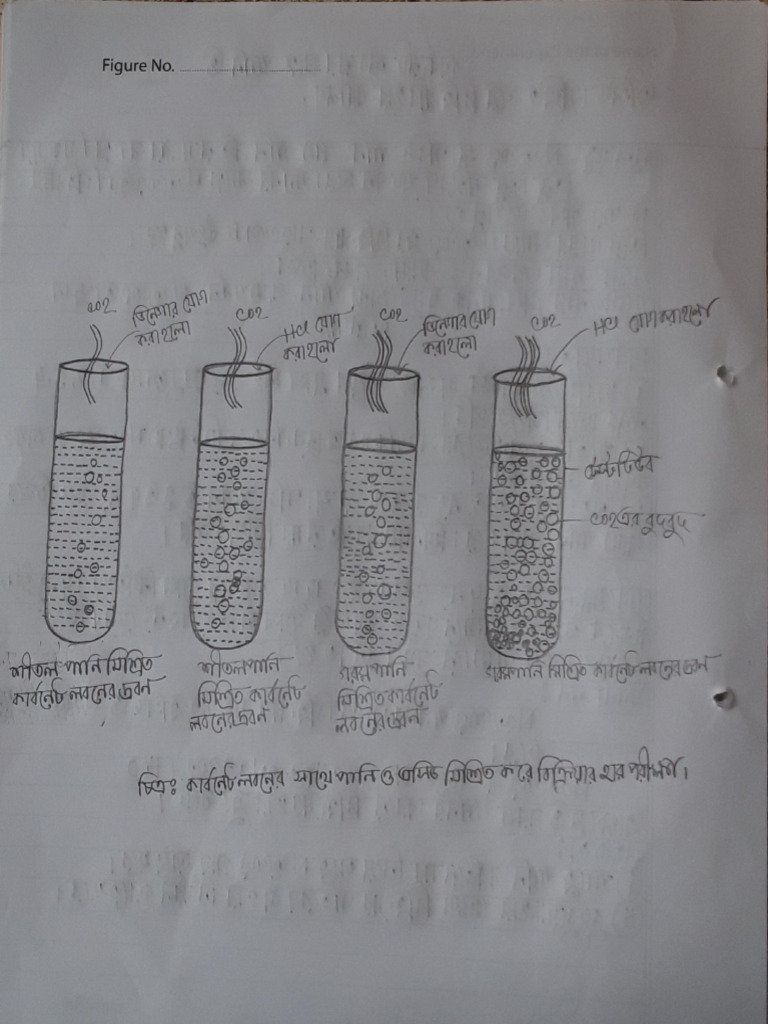 Figure No.
CO2
ভিনেগার যোগ
করা হলো
CO2
HCl যোগ
করা হলো
CO2
ভিনেগার যোগ
করা হলো
CO2
HCl যোগ করা হলো
টেস্টটিউব
CO2 এর বুদবুদ
শীতল পানি মিশ্রিত
কার্বনেট লবনের দ্রবন
শীতল পানি
মিশ্রিত কার্বনেট
লবনের দ্রবন
গরম পানি
মিশ্রিত কার্বনেট
লবনের দ্রবন
গরম পানি মিশ্রিত কার্বনেট লবনের দ্রবন
চিত্রঃ কার্বনেট লবনের সাথে পানি ও এসিড মিশ্রিত করে বিক্রিয়ার হার পরীক্ষা।